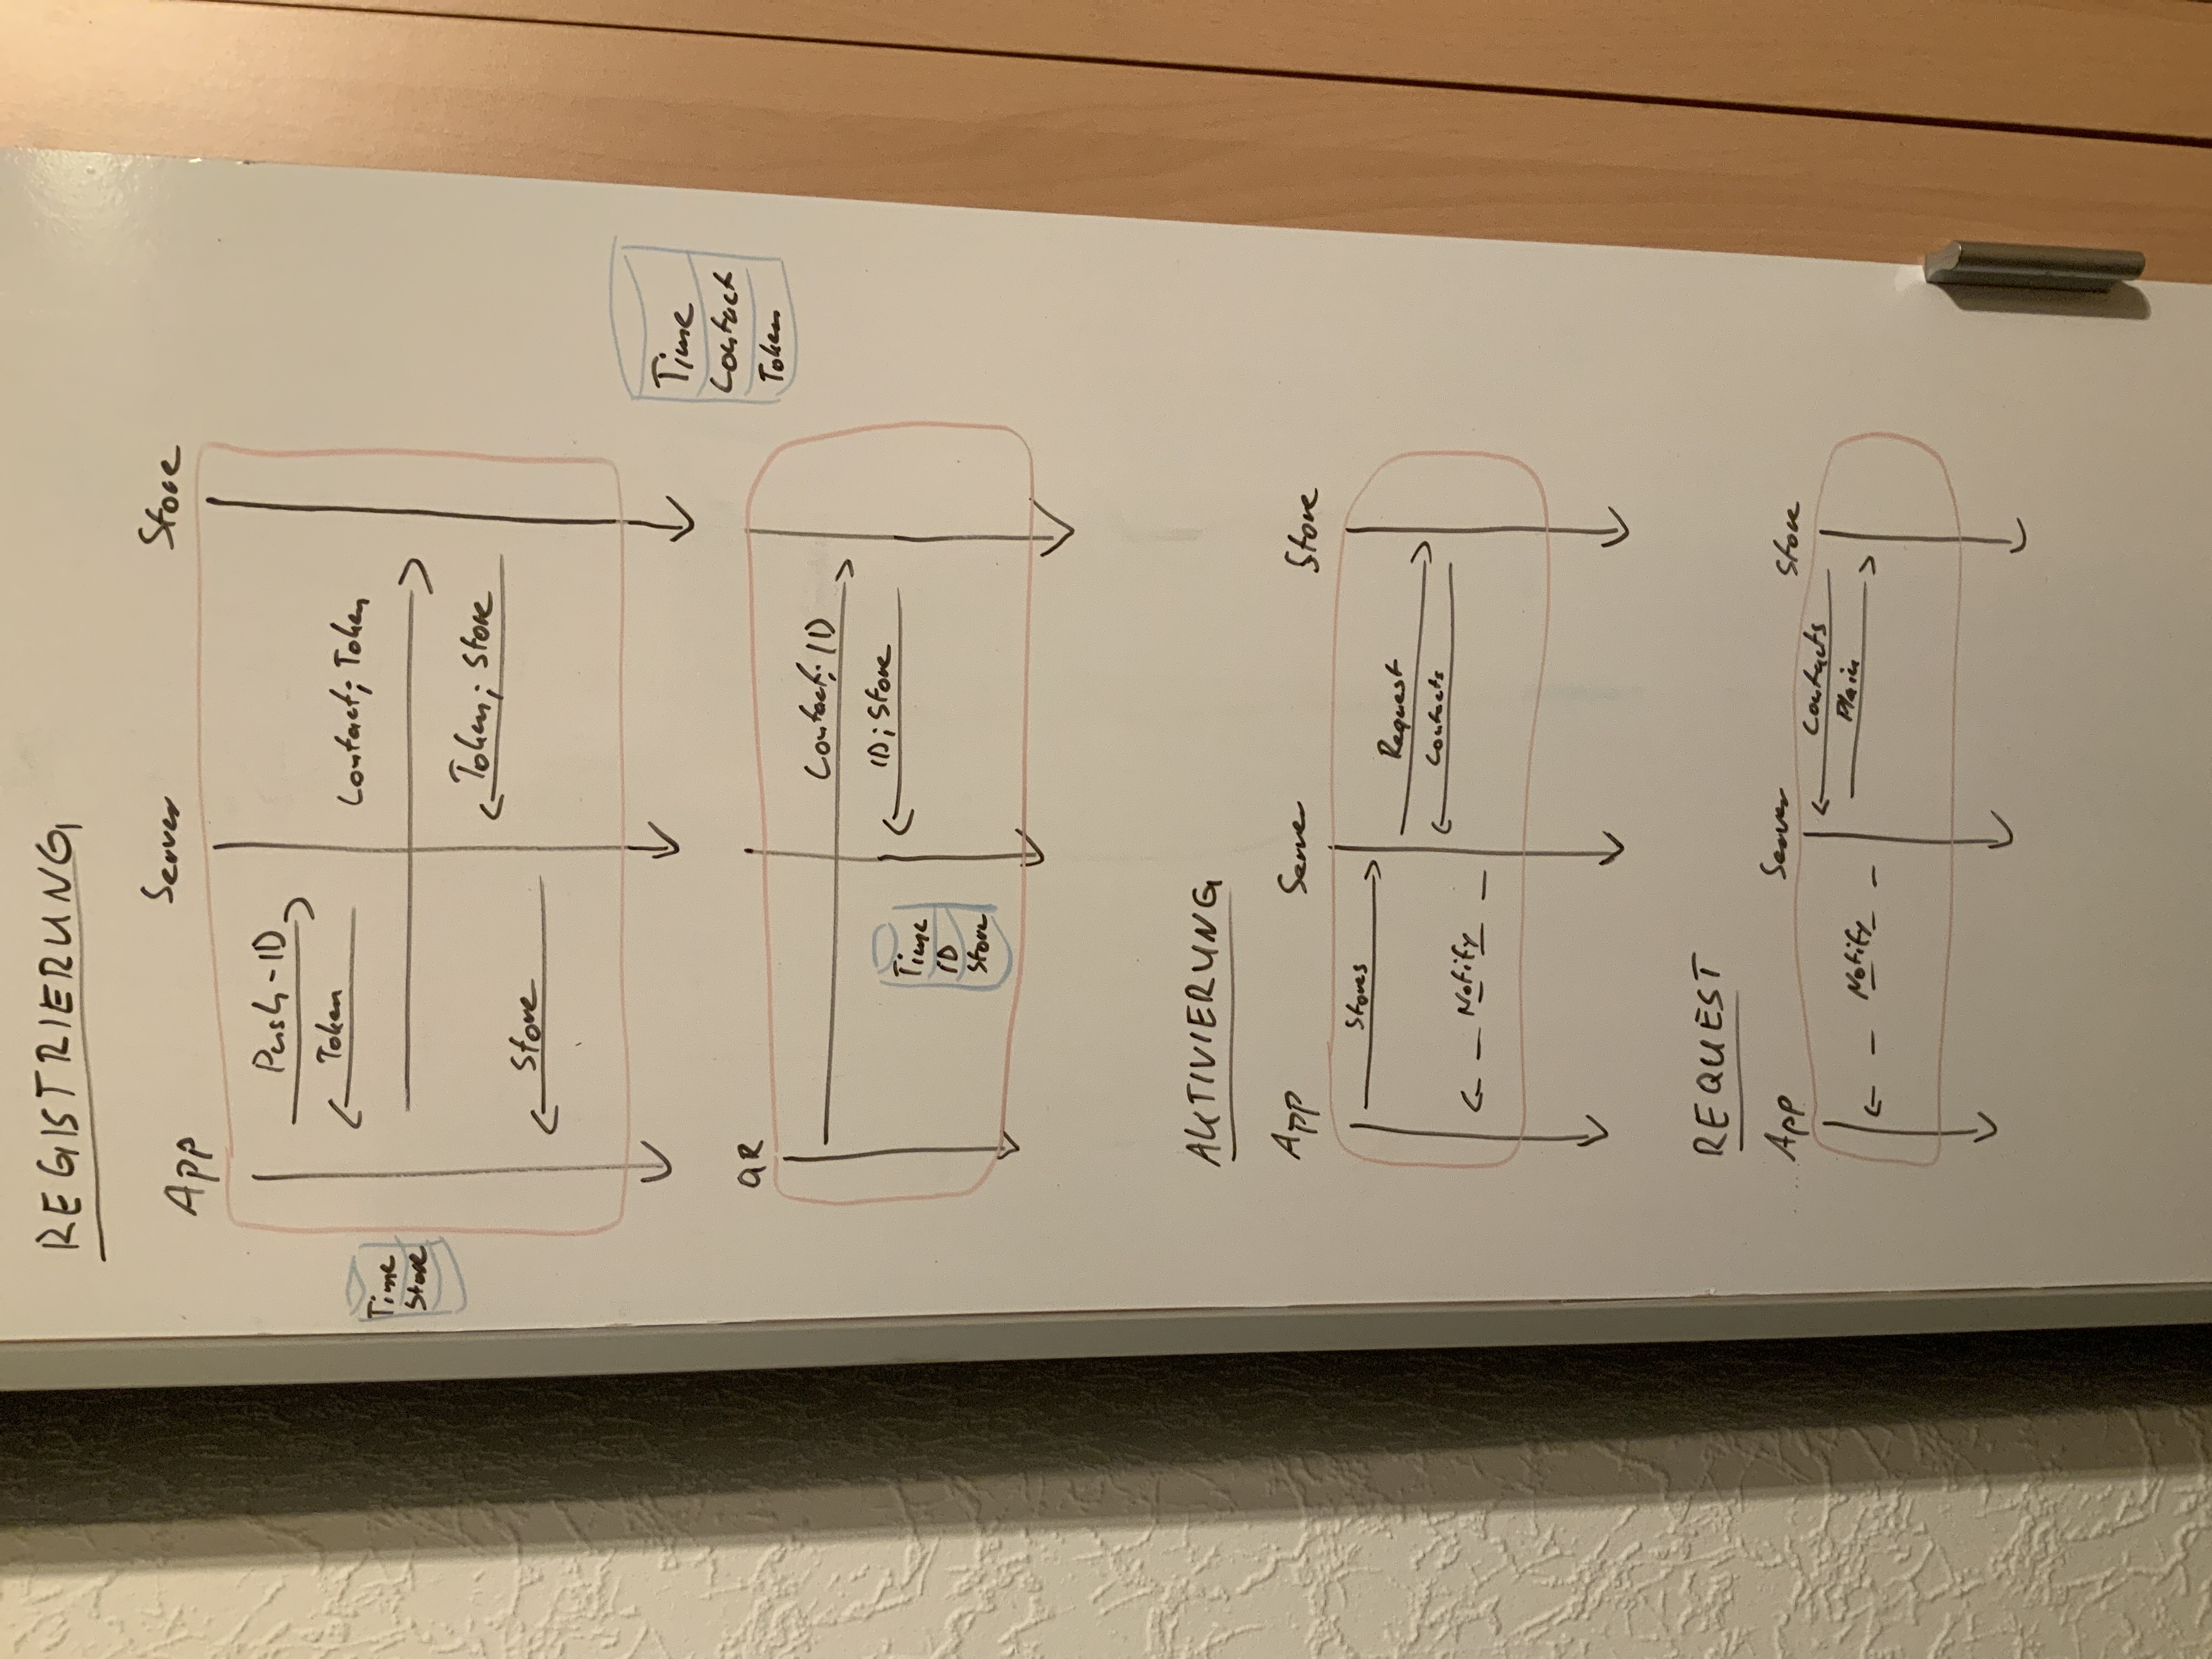 REGISTRIERUNG
App Server Store
Push-ID
Token
Contact; Token
Time
Store
Token; Store
Store
Time
Contact
Token
QR
Contact; ID
ID; Store
Time
ID
Store
AKTIVIERUNG
App Server Store
Stores
Request
Contacts
Notify
REQUEST
App Server Store
Contacts
Plain
Notify